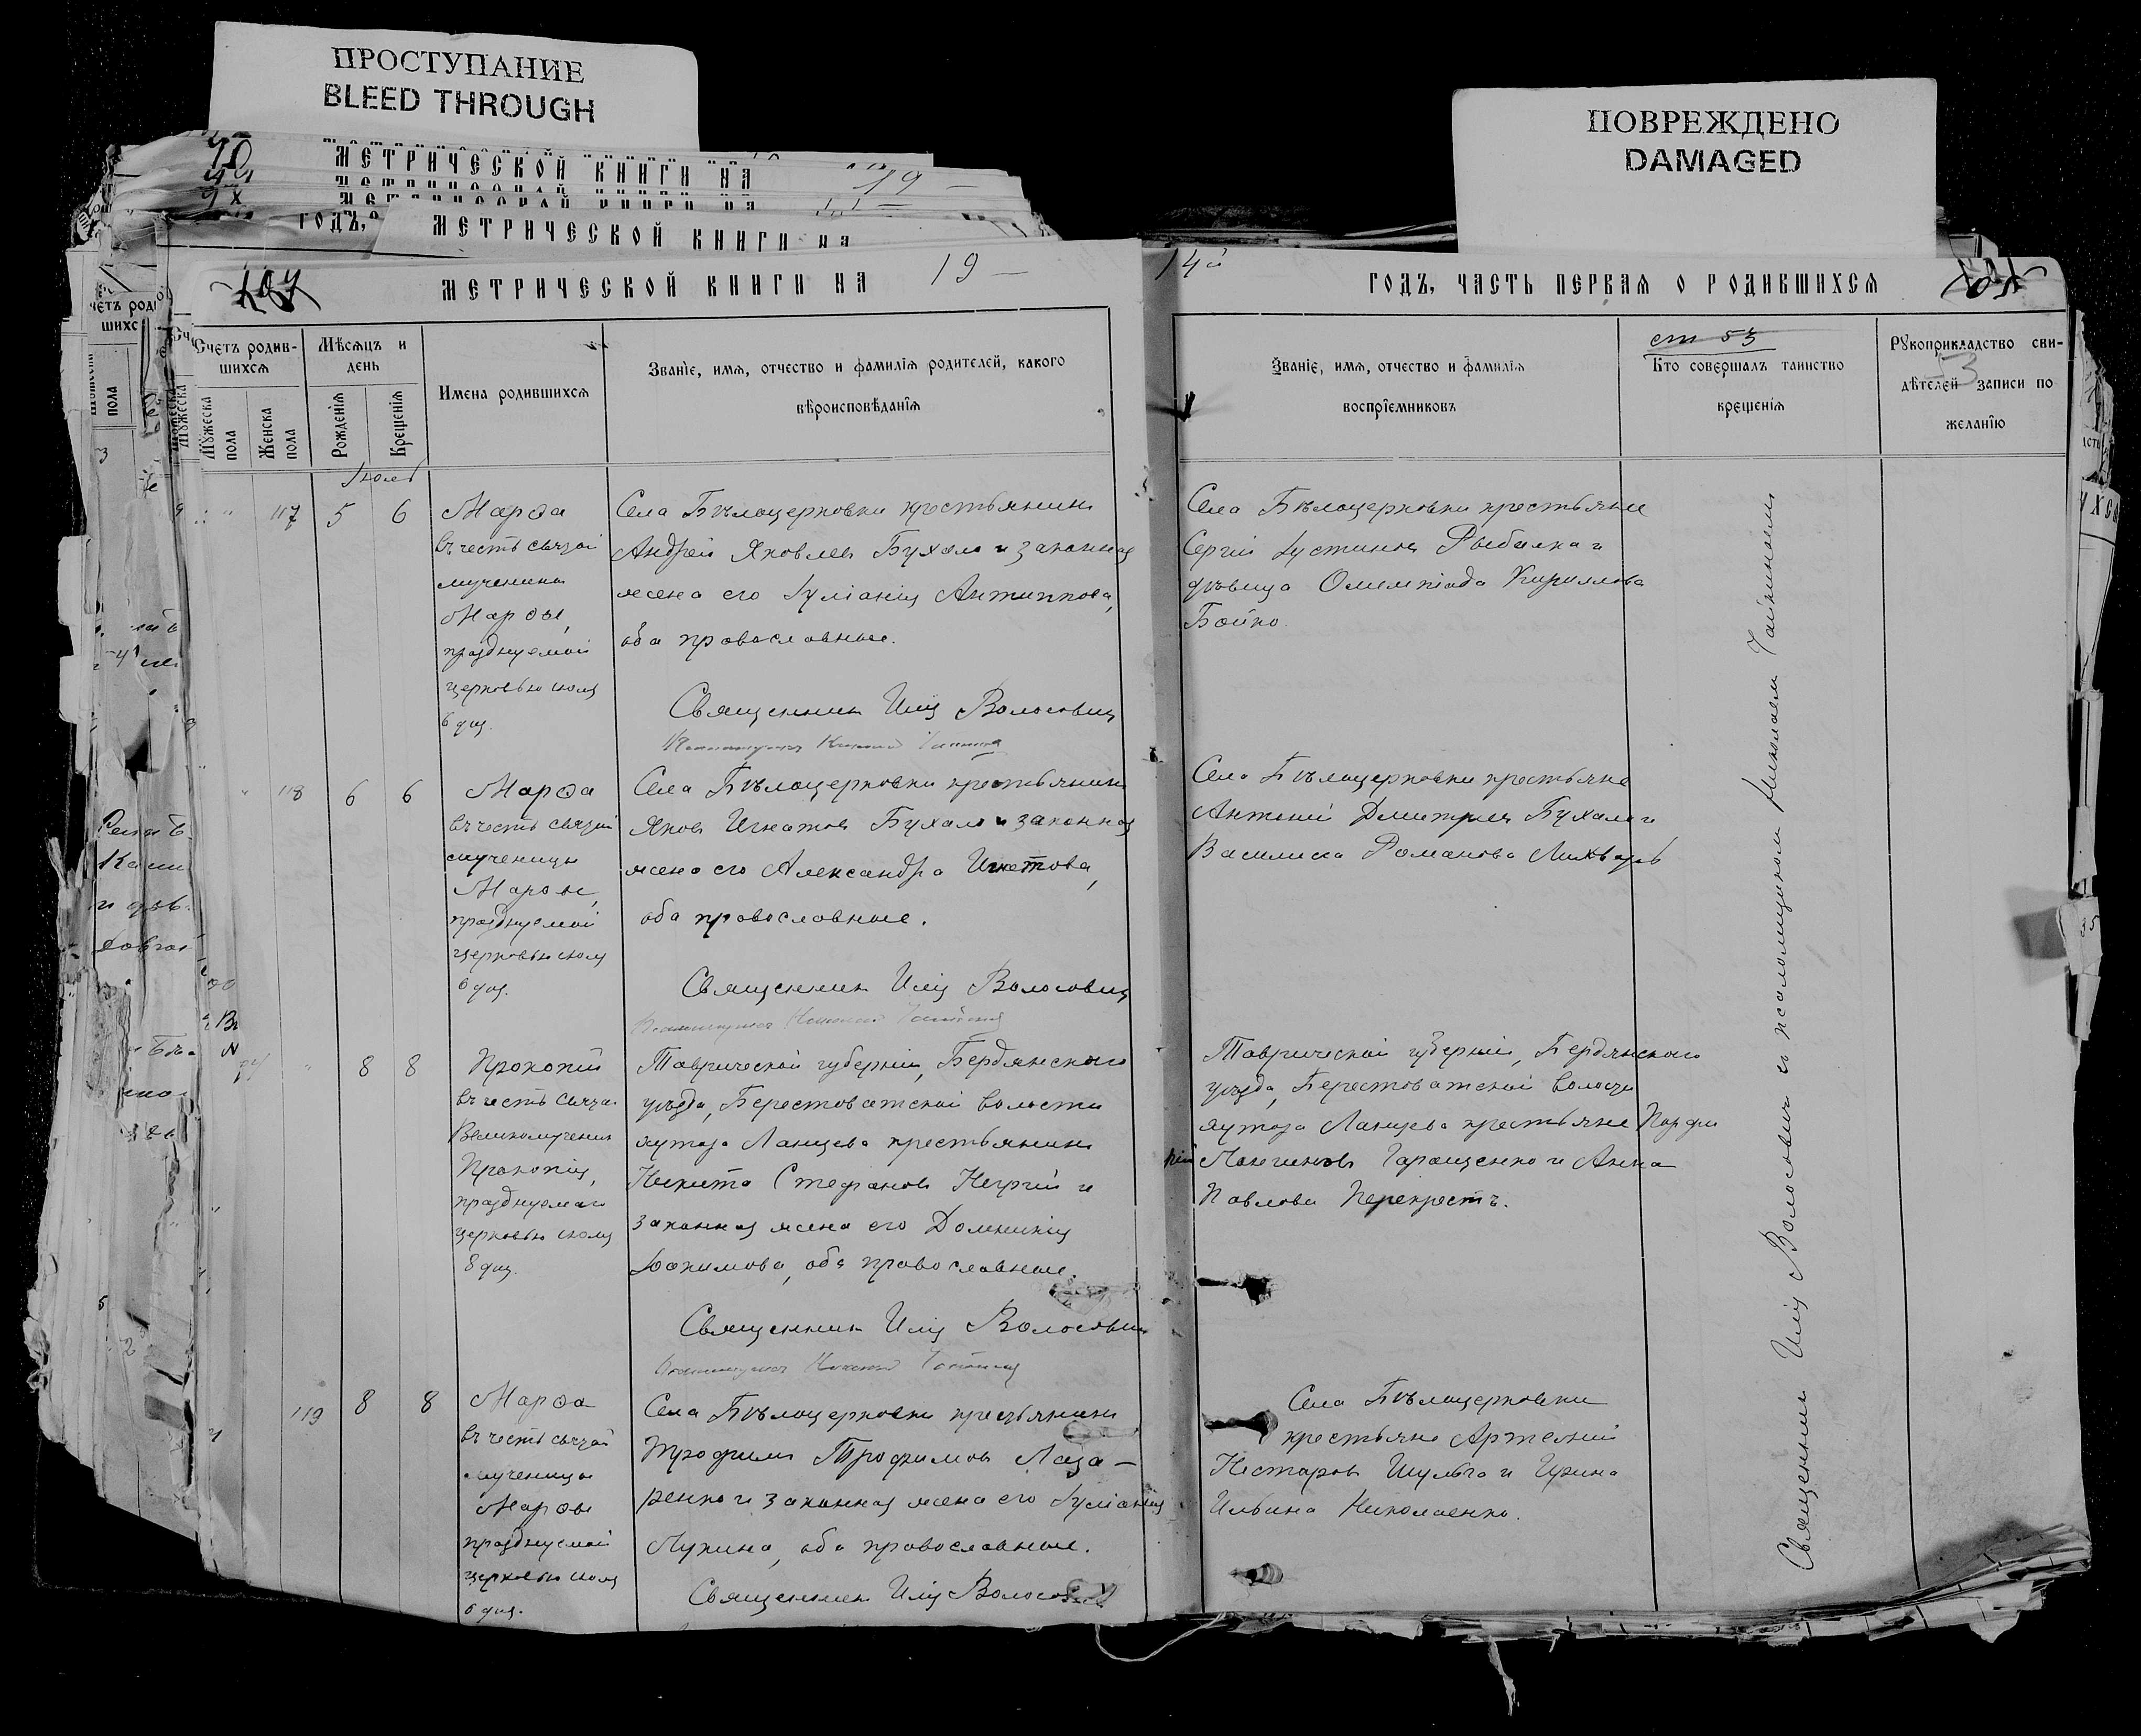 ПРОСТУПАНИЕ
BLEED THROUGH
ПОВРЕЖДЕНО
DAMAGED
МЕТРИЧЕСКОЙ КНИГИ НА 19
ГОДЪ,
МЕТРИЧЕСКОЙ КНИГИ НА
МЕТРИЧЕСКОЙ КНИГИ НА 19 —
14й ГОДЪ, ЧАСТЬ ПЕРВАЯ О РОДИВШИХСЯ
Счетъ родив-
шихся
Мужеска пола
Женска пола
Мѣсяцъ и
день
Рожденія
Крещенія
Имена родившихся
Званіе, имя, отчество и фамилія родителей, какого
вѣроисповѣданія
Званіе, имя, отчество и фамилія
воспріемниковъ
ст 53
Кто совершалъ таинство
крещенія
Рукоприкладство сви-
дѣтелей записи по
желанію
53
Іюль
117 5 6
Марѳа
въ честь святой
мученицы
Марѳы,
празднуемой
церковью іюля
6 дня.
Села Бѣлоцерковки крестьянинъ
Андрей Яковлевъ Бухало и законная
жена его Іуліанія Антиппова,
оба православные.
Священникъ Илія Волосович
Села Бѣлоцерковки крестьяне
Сергій Іустиновъ Рыбалка и
дѣвица Олимпіада Кириллова
Бойко.
118 6 6
Марѳа
въ честь святой
мученицы
Марѳы,
празднуемой
церковью іюля
6 дня.
Села Бѣлоцерковки крестьянинъ
Яковъ Игнатовъ Бухало и законная
жена его Александра Игнатова,
оба православные.
Священникъ Илія Волосович
Села Бѣлоцерковки крестьяне
Антоній Димитріев Бухало и
Василиса Романова Лихварь
8 8
Прокопій
въ честь святаго
Великомученика
Прокопія,
празднуемаго
церковью іюля
8 дня.
Таврической губерніи, Бердянскаго
уѣзда, Берестоватской волости
хутора Ланцева крестьянинъ
Никита Стефановъ Негрій и
законная жена его Домникія
Іоакимова, оба православные.
Священникъ Илія Волосович
Таврической губерніи, Бердянскаго
уѣзда, Берестоватской волости
хутора Ланцева крестьяне Порфи
рій Логиновъ Гаращенко и Анна
Павлова Перехрестъ.
119 8 8
Марѳа
въ честь святой
мученицы
Марѳы
празднуемой
церковью іюля
6 дня.
Села Бѣлоцерковки крестьянинъ
Трофимъ Трофимовъ Лаза-
ренко и законная жена его Іуліанія
Лукина, оба православные.
Священникъ Илія Волосович
Села Бѣлоцерковки
крестьяне Артемій
Несторовъ Шульга и Ирина
Ильина Николаенко.
Священникъ Илія Волосович съ псаломщиком Николаем Чайкиномъ